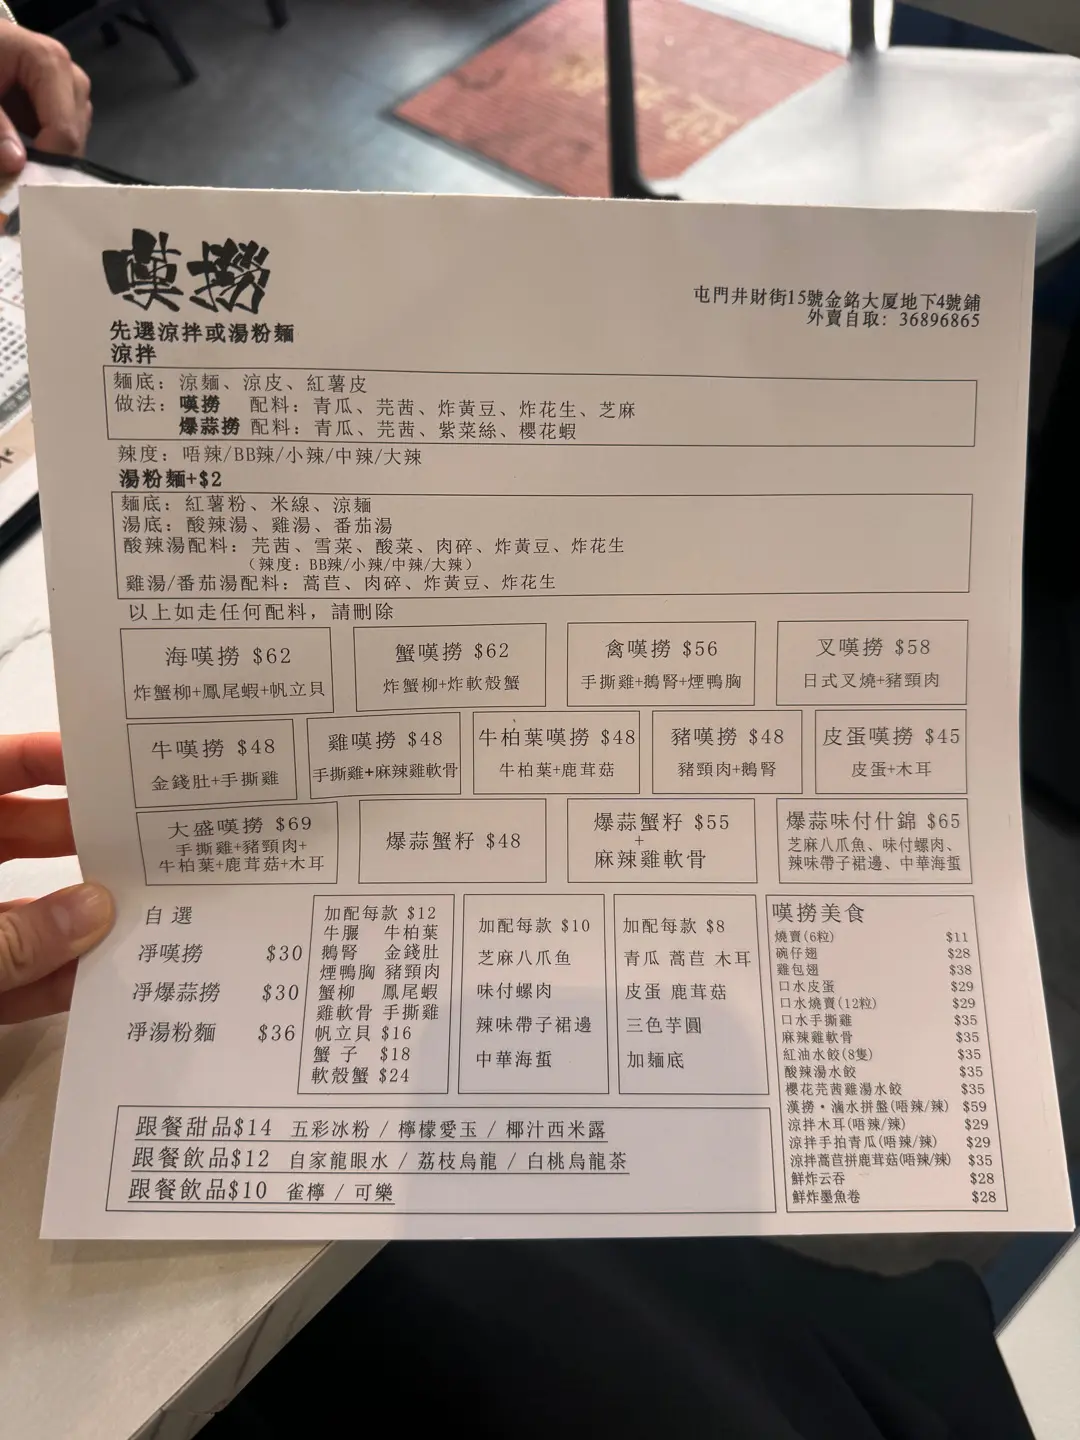 嘆撈
屯門井財街15號金銘大厦地下4號鋪
外賣自取: 36896865
先選涼拌或湯粉麵
涼拌
麵底: 涼麵、涼皮、紅薯皮
做法: 嘆撈 配料: 青瓜、芫茜、炸黃豆、炸花生、芝麻
爆蒜撈 配料: 青瓜、芫茜、紫菜絲、櫻花蝦
辣度: 唔辣/BB辣/小辣/中辣/大辣
湯粉麵+$2
麵底: 紅薯粉、米線、涼麵
湯底: 酸辣湯、雞湯、番茄湯
酸辣湯配料: 芫茜、雪菜、酸菜、肉碎、炸黃豆、炸花生
(辣度: BB辣/小辣/中辣/大辣)
雞湯/番茄湯配料: 萵苣、肉碎、炸黃豆、炸花生
以上如走任何配料, 請刪除
海嘆撈 $62
炸蟹柳+鳳尾蝦+帆立貝
蟹嘆撈 $62
炸蟹柳+炸軟殼蟹
禽嘆撈 $56
手撕雞+鵝腎+煙鴨胸
叉嘆撈 $58
日式叉燒+豬頸肉
牛嘆撈 $48
金錢肚+手撕雞
雞嘆撈 $48
手撕雞+麻辣雞軟骨
牛柏葉嘆撈 $48
牛柏葉+鹿茸菇
豬嘆撈 $48
豬頸肉+鵝腎
皮蛋嘆撈 $45
皮蛋+木耳
大盛嘆撈 $69
手撕雞+豬頸肉+
牛柏葉+鹿茸菇+木耳
爆蒜蟹籽 $48
爆蒜蟹籽 $55
+
麻辣雞軟骨
爆蒜味付什錦 $65
芝麻八爪魚、味付螺肉、
辣味帶子裙邊、中華海蜇
自選
凈嘆撈 $30
凈爆蒜撈 $30
凈湯粉麵 $36
加配每款 $12
牛𦟌 牛柏葉
鵝腎 金錢肚
煙鴨胸 豬頸肉
蟹柳 鳳尾蝦
雞軟骨 手撕雞
帆立貝 $16
蟹子 $18
軟殼蟹 $24
加配每款 $10
芝麻八爪魚
味付螺肉
辣味帶子裙邊
中華海蜇
加配每款 $8
青瓜 萵苣 木耳
皮蛋 鹿茸菇
三色芋圓
加麵底
嘆撈美食
燒賣(6粒) $11
碗仔翅 $28
雞包翅 $38
口水皮蛋 $29
口水燒賣(12粒) $29
口水手撕雞 $35
麻辣雞軟骨 $35
紅油水餃(8隻) $35
酸辣湯水餃 $35
櫻花芫茜雞湯水餃 $35
漢撈・滷水拼盤(唔辣/辣) $59
涼拌木耳(唔辣/辣) $29
涼拌手拍青瓜(唔辣/辣) $29
涼拌萵苣拼鹿茸菇(唔辣/辣) $35
鮮炸云吞 $28
鮮炸墨魚卷 $28
跟餐甜品$14 五彩冰粉 / 檸檬愛玉 / 椰汁西米露
跟餐飲品$12 自家龍眼水 / 荔枝烏龍 / 白桃烏龍茶
跟餐飲品$10 雀檸 / 可樂